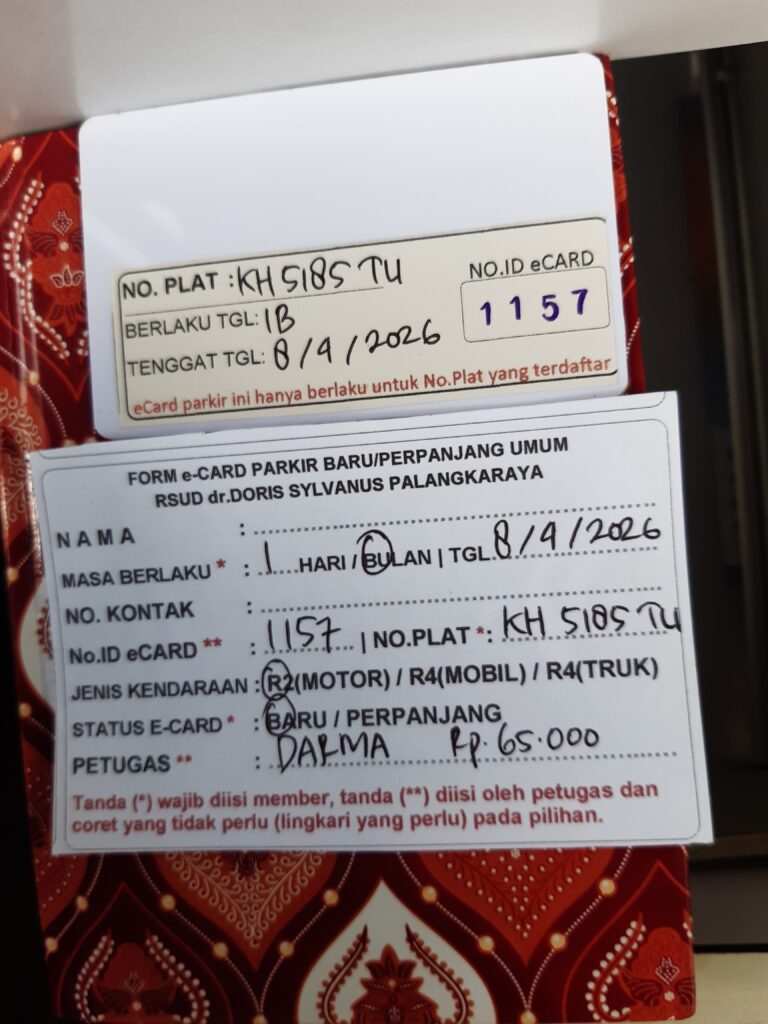 NO. PLAT : KH 5185 TU
NO.ID eCARD
1157
BERLAKU TGL: 1B
TENGGAT TGL: 8/9/2026
eCard parkir ini hanya berlaku untuk No.Plat yang terdaftar
FORM e-CARD PARKIR BARU/PERPANJANG UMUM
RSUD dr.DORIS SYLVANUS PALANGKARAYA
NAMA :
MASA BERLAKU * : 1 HARI / BULAN | TGL 8/9/2026
NO. KONTAK :
No.ID eCARD ** : 1157 | NO.PLAT *: KH 5185 TU
JENIS KENDARAAN : R2(MOTOR) / R4(MOBIL) / R4(TRUK)
STATUS E-CARD * : BARU / PERPANJANG
PETUGAS ** : DARMA Rp. 65.000
Tanda (*) wajib diisi member, tanda (**) diisi oleh petugas dan
coret yang tidak perlu (lingkari yang perlu) pada pilihan.